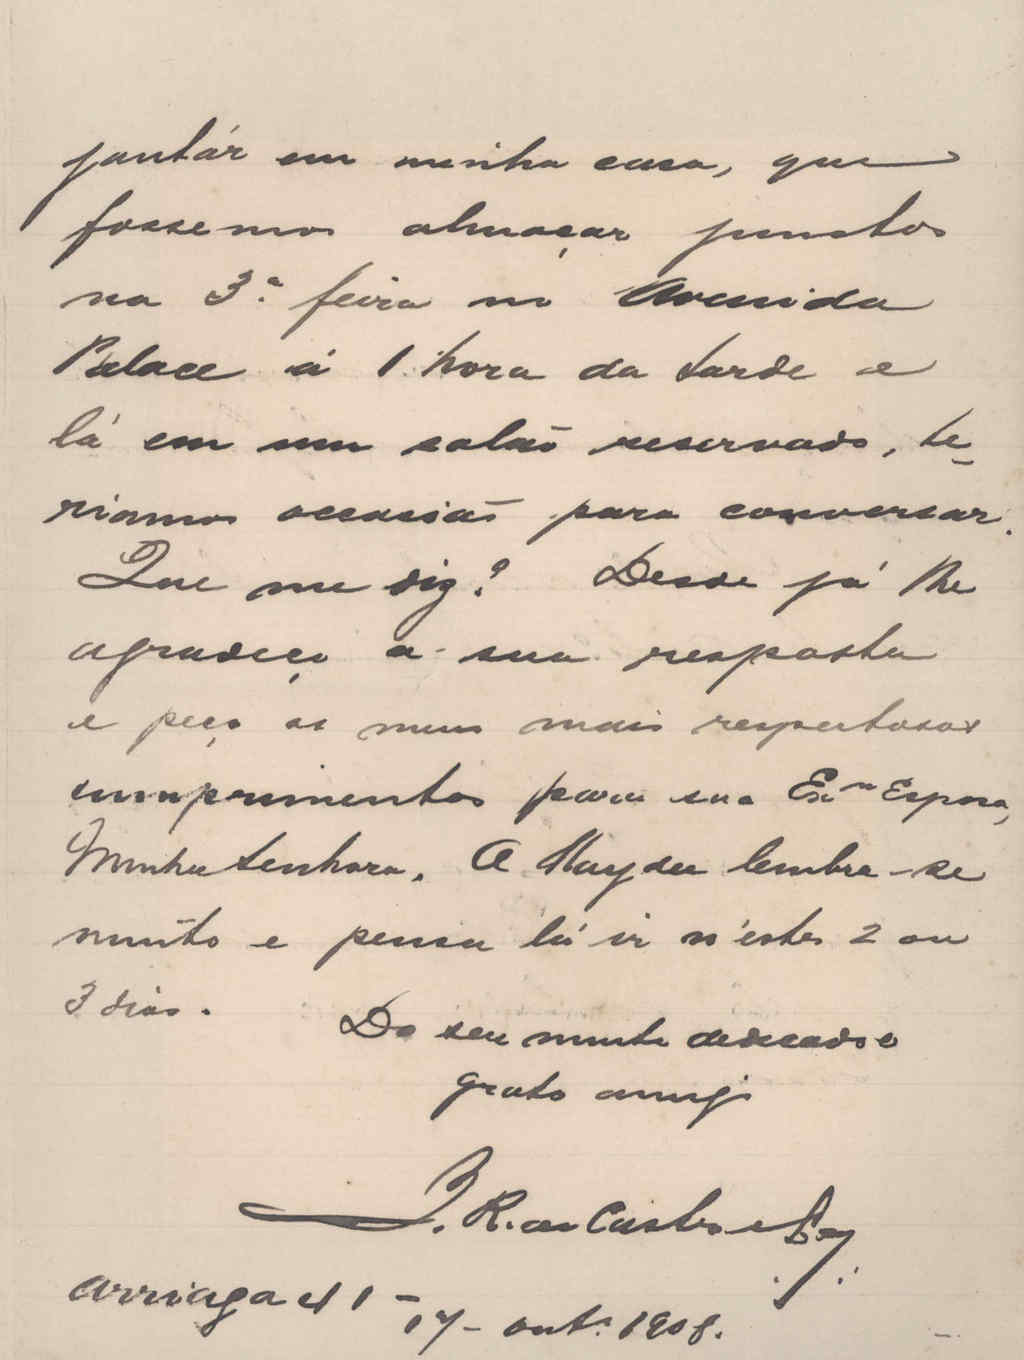 jantár em minha casa, que
fossemos almoçar juntos
na 3.ª feira no Avenida
Palace á 1 hora da tarde e
lá em um salão reservado, te-
riamos occasião para conversar.
Que me diz? Desde já lhe
agradeço a sua resposta
e peço os meus mais respeitosos
cumprimentos para sua Exma Esposa,
Minha Senhora. A Haydea lembra-se
muito e pensa lá ir n'estes 2 ou
3 dias.
Do seu muito dedicado e
grato amigo
J. R. da Castro e
Arriaga 1 -
17 - outº 1908.